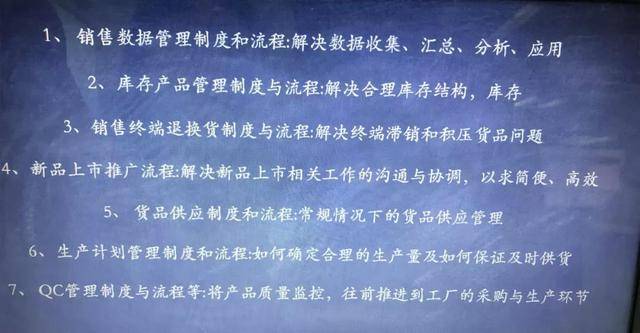 1、 销售数据管理制度和流程:解决数据收集、汇总、分析、应用
2、库存产品管理制度与流程:解决合理库存结构，库存
3、销售终端退换货制度与流程:解决终端滞销和积压货品问题
4、新品上市推广流程:解决新品上市相关工作的沟通与协调，以求简便、高效
5、 货品供应制度和流程:常规情况下的货品供应管理
6、生产计划管理制度和流程:如何确定合理的生产量及如何保证及时供货
7、 QC管理制度与流程等:将产品质量监控，往前推进到工厂的采购与生产环节